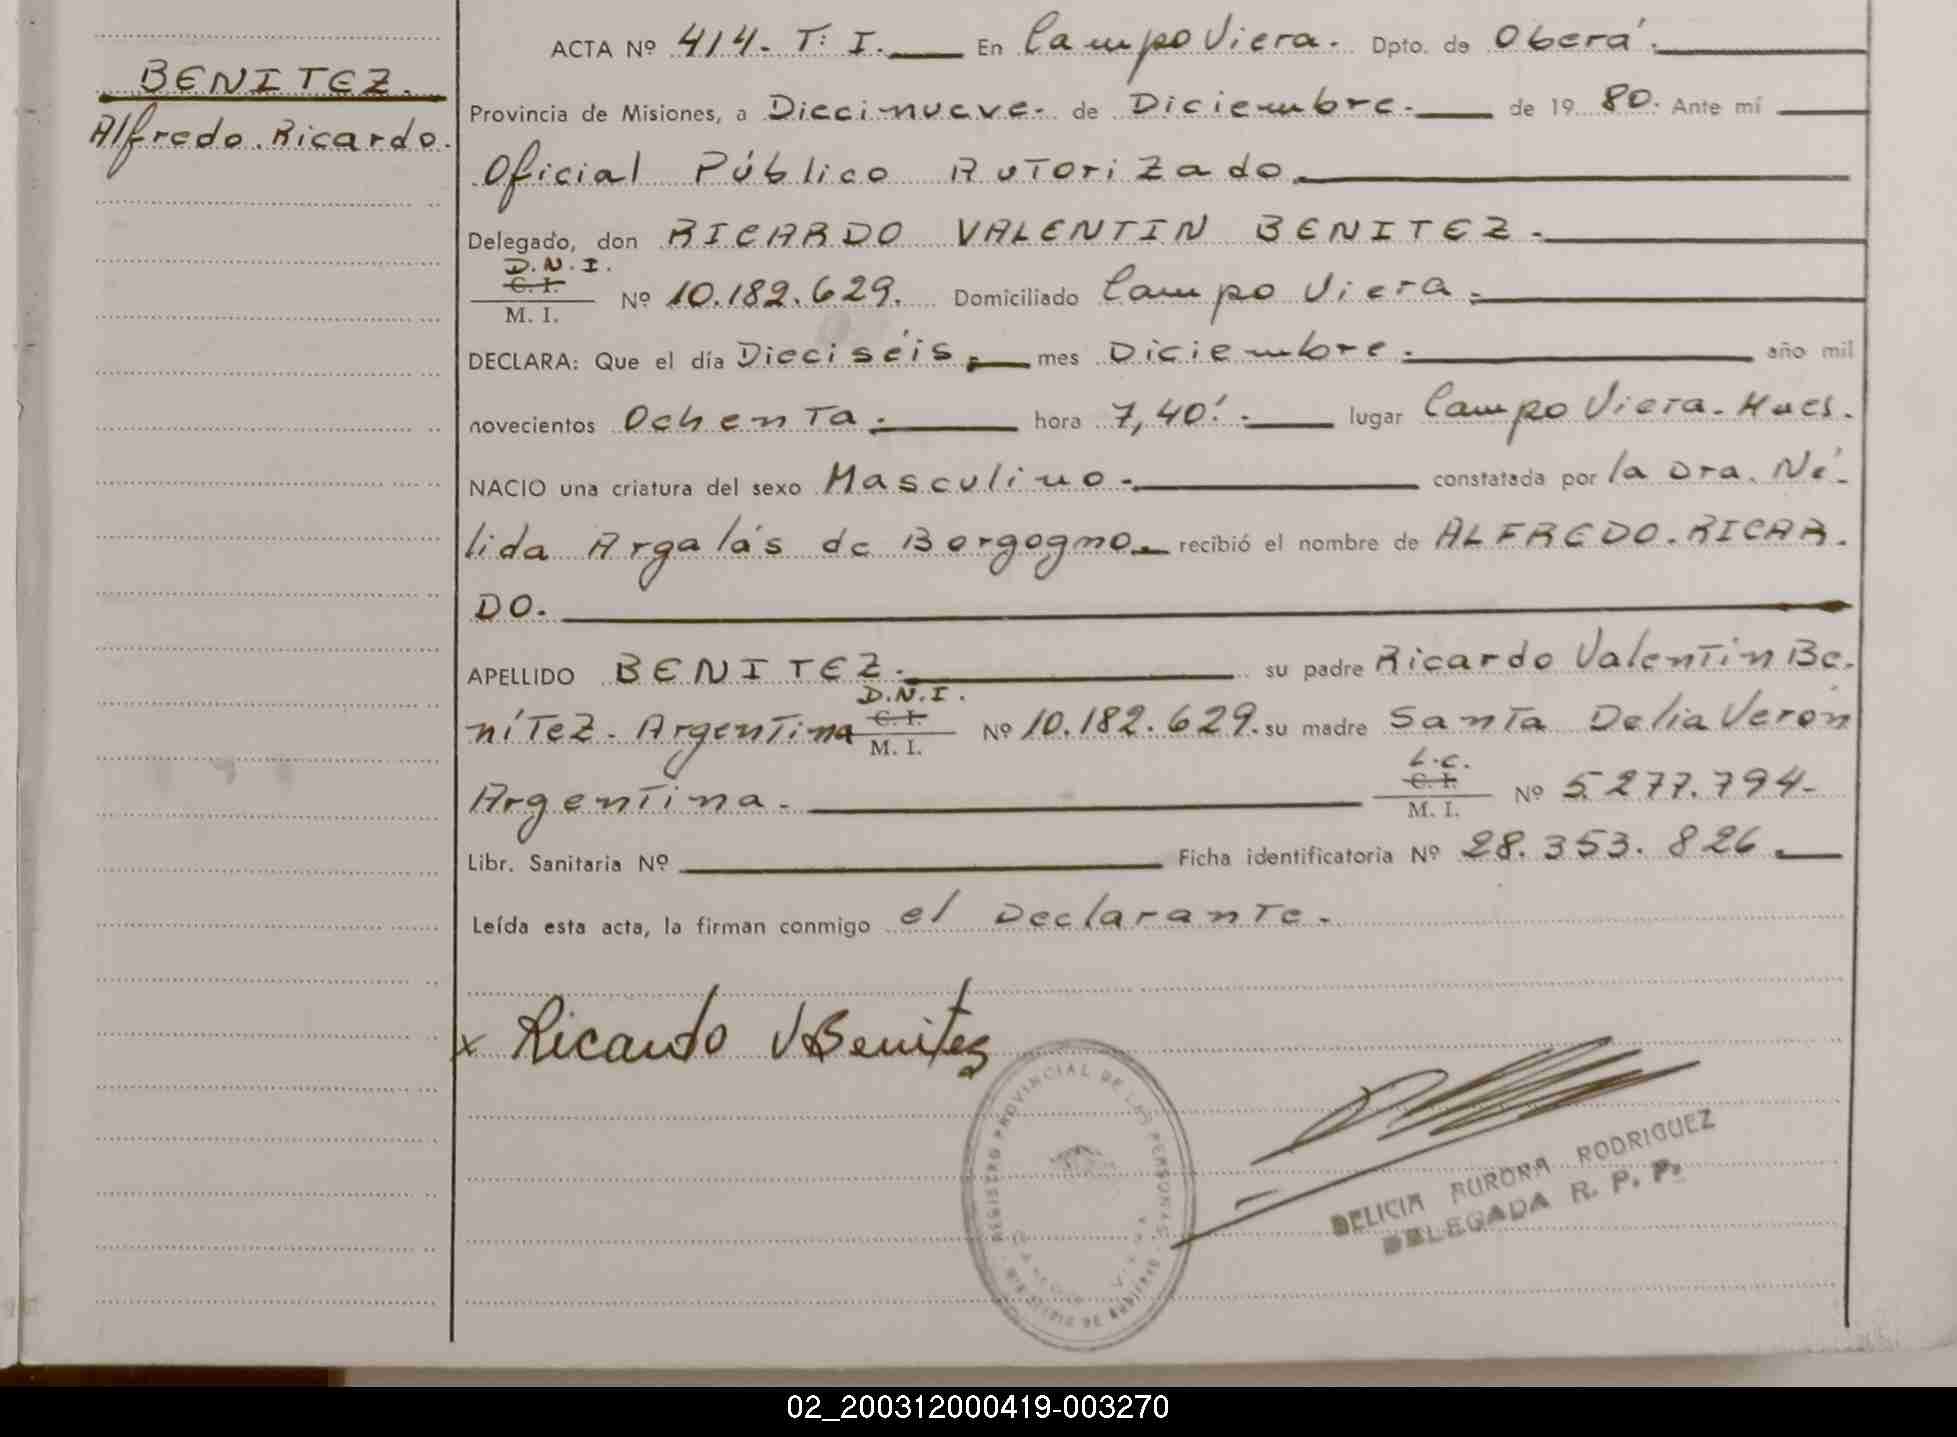 BENITEZ.
Alfredo. Ricardo.
ACTA Nº 414. T: I. En Campo Viera. Dpto. de Oberá.
Provincia de Misiones, a Diecinueve. de Diciembre. de 19 80. Ante mí
Oficial Público Autorizado.
Delegado, don RICARDO VALENTIN BENITEZ.
D.N.I.
C. I.
M. I.
Nº 10.182.629. Domiciliado Campo Viera.
DECLARA: Que el día Dieciséis. mes Diciembre. año mil
novecientos Ochenta. hora 7,40'. lugar Campo Viera. Mnes.
NACIO una criatura del sexo Masculino. constatada por la Dra. Né-
lida Argalás de Borgogno. recibió el nombre de ALFREDO. RICAR.
DO.
APELLIDO BENITEZ. su padre Ricardo Valentin Be.
D.N.I.
nítez. Argentina C. I. M. I. Nº 10.182.629. su madre Santa Delia Verón
L.C.
Argentina. C. I. M. I. Nº 5.277.794-
Libr. Sanitaria Nº Ficha identificatoria Nº 28.353.826.
Leída esta acta, la firman conmigo el Declarante.
x Ricardo V Benitez
REGISTRO PROVINCIAL DE LAS PERSONAS
MINISTERIO DE GOBIERNO
DELICIA AURORA RODRIGUEZ
DELEGADA R. P. P.
02_200312000419-003270